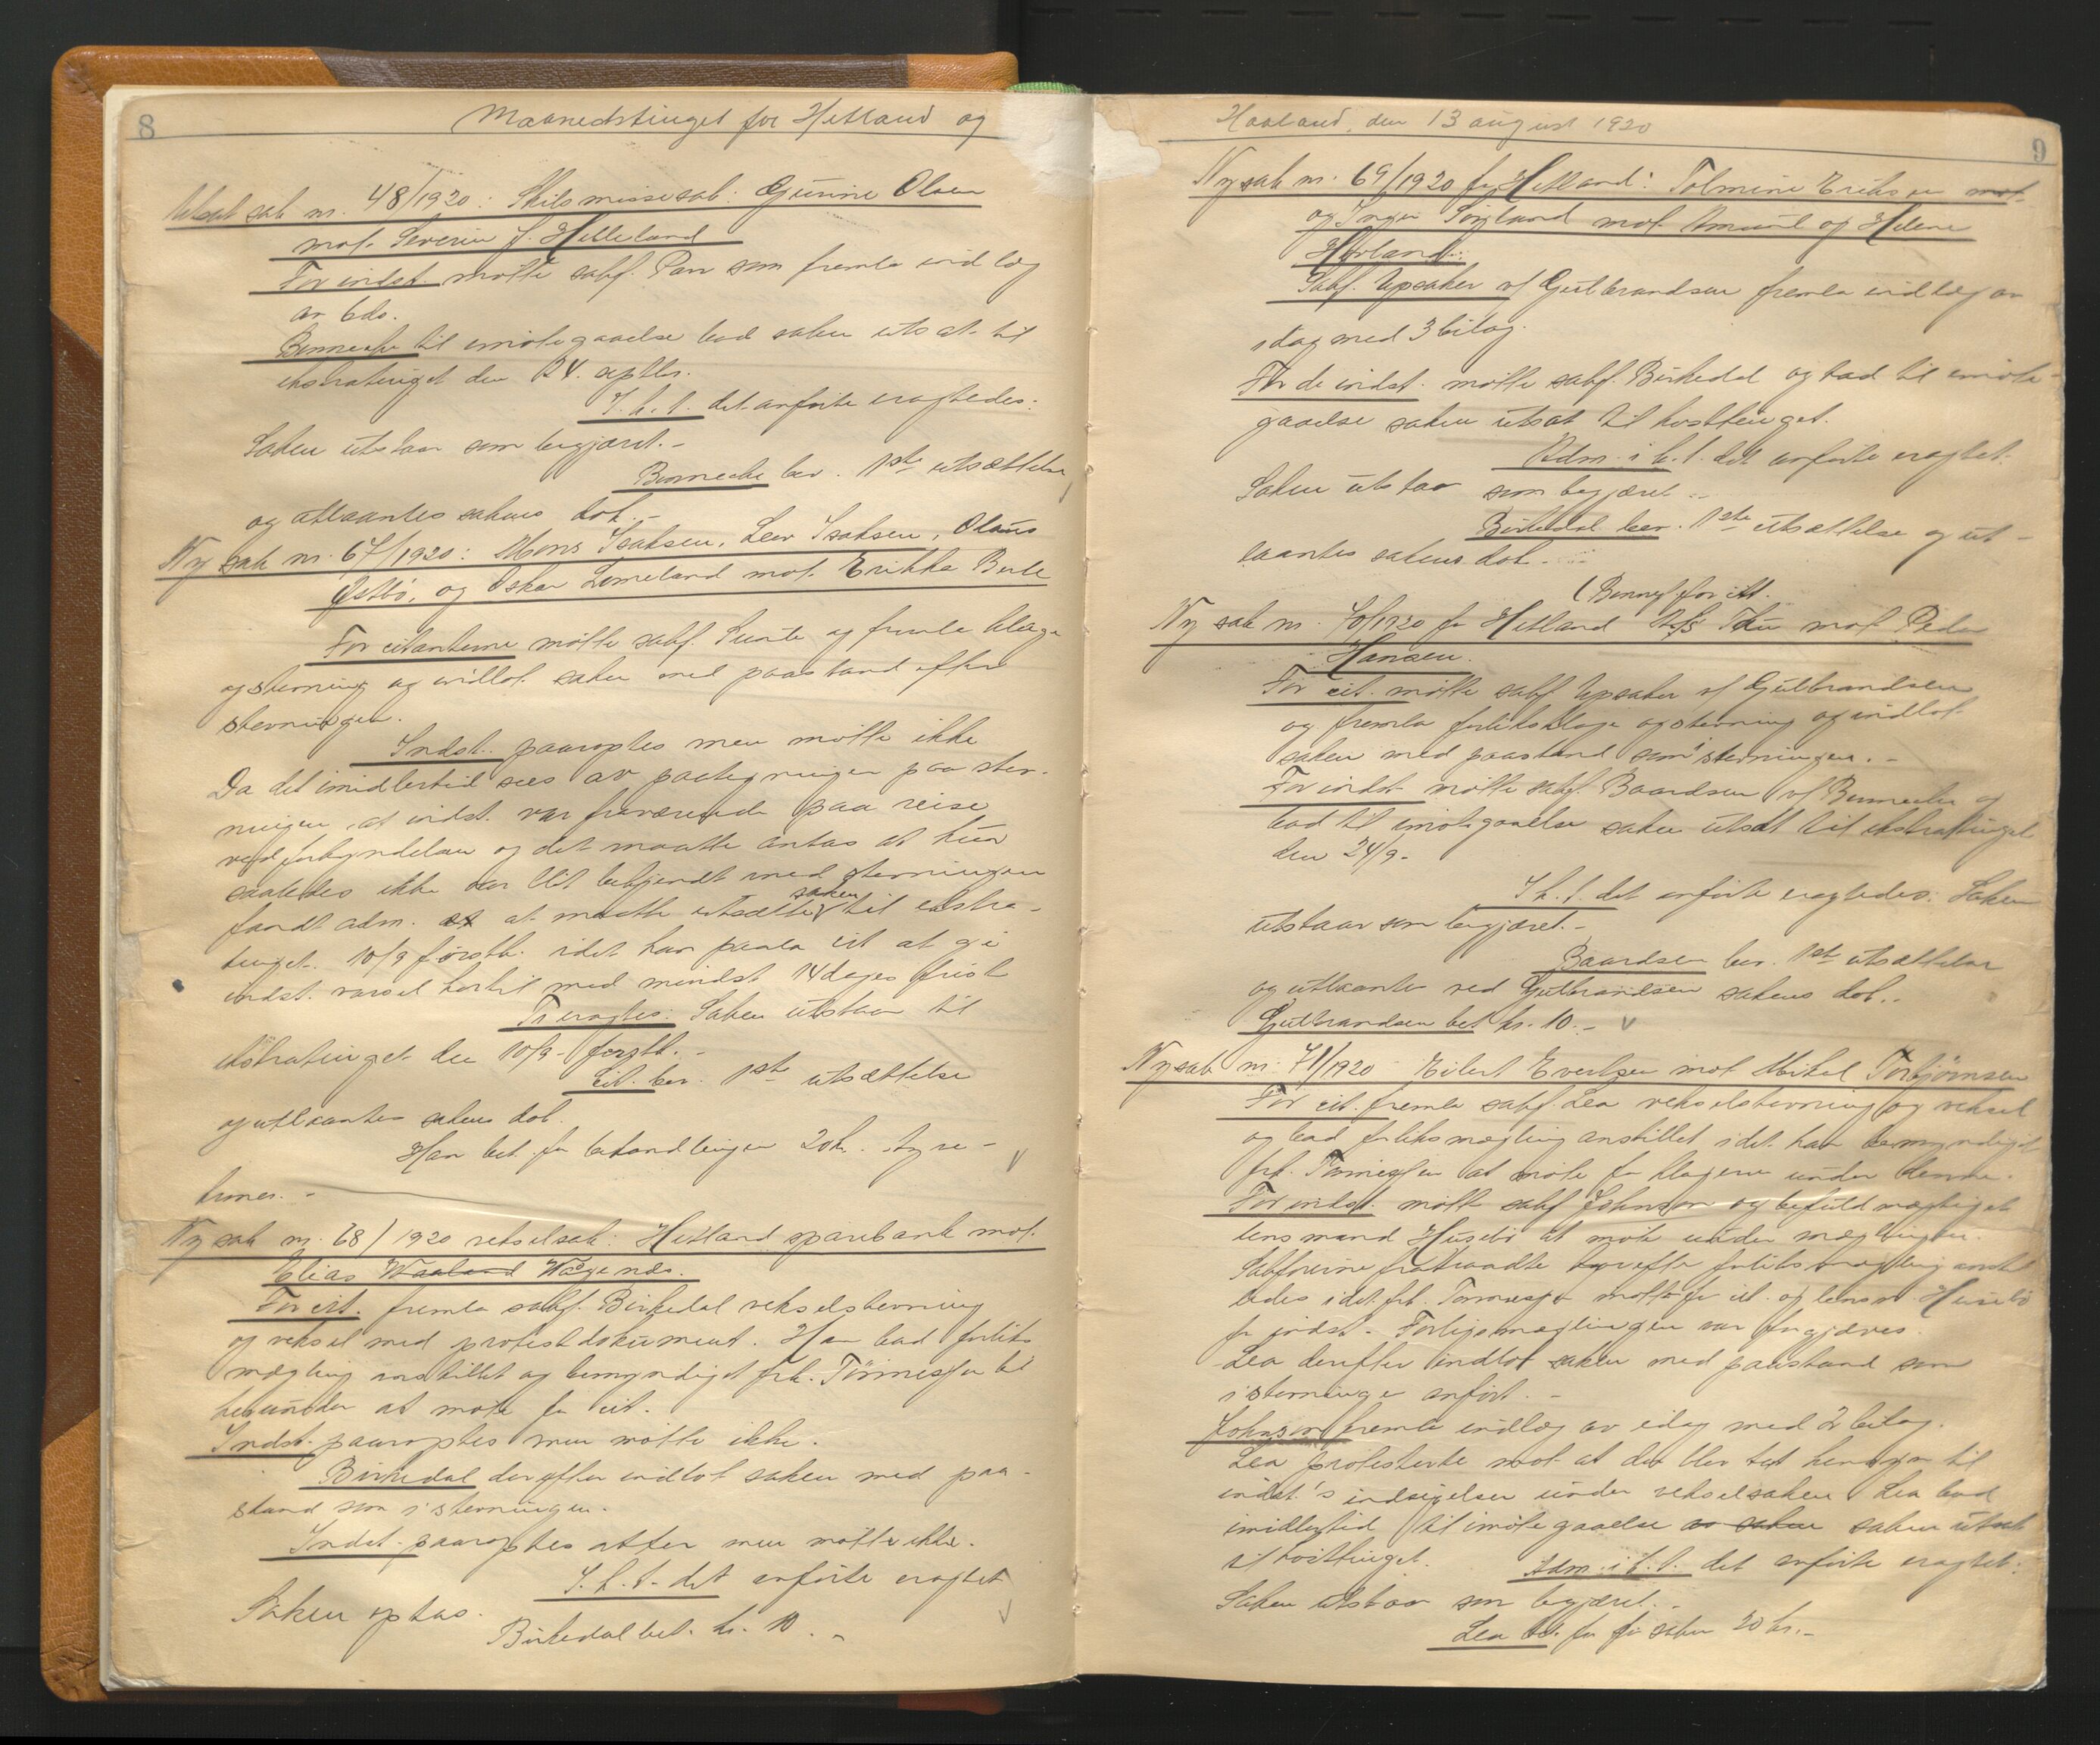 8
Maanedstinget for Hetland og
Utsat sak nr. 48/1920: Skilsmissesak: Gurine Olsen
mot Severin J. Helleland
For indst. møtte sakf. Parr som fremla indlæg
av ds.
Bennecke til imøtegaaelse bad saken utsat til
ekstratinget den 24. septbr.
I h. t. det anførte eragtedes:
Saken utstaar som begjæret.-
Bennecke bev. 1ste utsættelse
og utlaantes sakens dok.-
Ny sak nr. 67/1920: Mons Isaksen, Leer Isaksen, Olaus
Østbö, og Oskar Lomeland mot Erikka Berle
For citanterne møtte sakf. Sunte og fremla klage
og stevning og indlot saken med paastand efter
stevningen.
Indst. paaroptes men møtte ikke
Da det imidlertid sees av paategningen paa stev-
ningen, at indst. var fraværende paa reise
ved forkyndelsen og det maatte antas at hun
saaledes ikke var blit bekjendt med stevningen
fandt adm. at maatte utsætte saken til ekstra-
tinget 10/9 førstk. idet han paala cit at gi
indst. varsel hertil med mindst 14 dages frist
Ti eragtes: Saken utstaar til
ekstratinget den 10/9 førstk.-
Cit. bev. 1ste utsættelse
og utlaantes sakens dok.
Han bet. for behandlingen 20 kr. tyve-
kroner.-
Ny sak nr. 68/1920 vekselsak: Hetland sparebank mot
Elias Waaland Waagenæs.
For cit. fremla sakf. Birkedal vekselstevning
og veksel med protestdokument. Han bad forliks
mægling anstillet og bemyndiget frk. Tönnessen til
herunder at møte for cit.
Indst. paaroptes men møtte ikke.
Birkedal derefter indlot saken med paa-
stand som i stevningen.
Indst. paaroptes atter men møtte ikke.
I. h. t. det anførte eragtet
Saken optas.
Birkedal bet. kr. 10.-
Haaland, den 13 august 1920
9
Ny sak nr. 69/1920 for Hetland: Tolmine Eriksen mot
og Inger Soyland mot Amund og Helene
Hovland:
Sakf. Upsaker v/ Gulbrandsen fremla indlæg av
idag med 3 bilag.
For de indst. møtte sakf. Birkedal og bad til imøte-
gaaelse saken utsat til høsttinget.
Adm. i h. t. det anførte eragtet:
Saken utstaar som begjæret.-
Birkedal bev. 1ste utsættelse og ut-
laantes sakens dok.-
(Bennef. for citt.
Ny sak nr. 70/1920 for Hetland Thu mot Peder
Hansen.
For cit. møtte sakf Upsaker v/ Gulbrandsen
og fremla forliksklage og stevning og indlot
saken med paastand som i stevningen.-
For indst møtte sakf. Baardsen v/ Bennecke og
bad til imøtegaaelse saken utsat til ekstratinget
den 24/9-
I h. t. det anførte eragtedes: Saken
utstaar som begjæret.-
Baardsen bev. 1ste utsættelse
og utlaantes ved Gulbrandsen sakens dok.-
Gulbrandsen bet kr. 10.-
Ny sak nr. 71/1920 Eilert Evertsen mot Mikal Torbjörnsen
For cit. fremla sakf. Lea vekselstevning og veksel
og bad forliksmægling anstillet idet han bemyndiget
frk. Tönnessen at møte for klageren under denne.
For indst. møtte sakf Johnsen og befuldmægtiget
lensmand Husebö at møte under mæglingen.
Sakførerne fratraadte hvorefter forliksmægling anstil
ledes idet frk. Tönnessen møtte for cit. og lensm. Husebö
for indst. Forligsmæglingen var forgjæves.
Lea derefter indlot saken med paastand som
i stevningen anført.-
Johnsen fremla indlæg av idag med 2 bilag.
Lea protesterte mot at det blev tat hensyn til
indst.'s indsigelser under vekselsaken Lea bad
imidlertid til imøtegaaelse av saken saken utsat
til høsttinget. Adm. i h. t. det anførte eragtet:
Saken utstaar som begjæret.-
Lea bet. for saken 20 kr.-